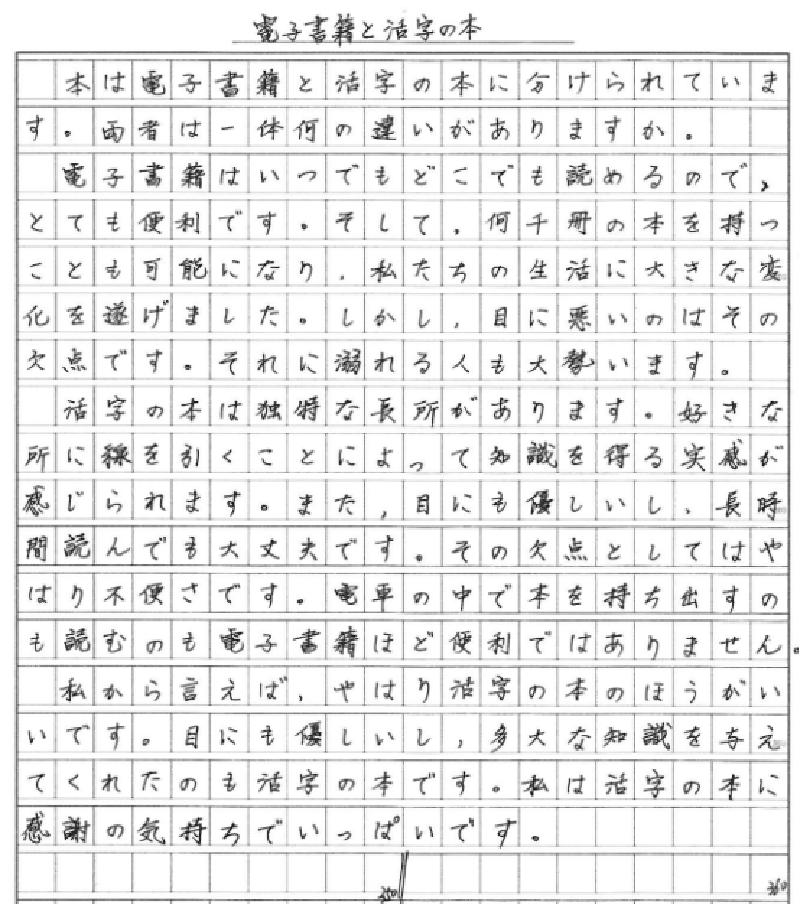 電子書籍と活字の本
本は電子書籍と活字の本に分けられていま
す。両者は一体何の違いがありますか。
電子書籍はいつでもどこでも読めるので、
とても便利です。そして、何千冊の本を持つ
ことも可能になり、私たちの生活に大きな変
化を遂げました。しかし、目に悪いのはその
欠点です。それに溺れる人も大勢います。
活字の本は独特な長所があります。好きな
所に線を引くことによって知識を得る実感が
感じられます。また,目にも優しいし、長時
間読んでも大丈夫です。その欠点としてはや
はり不便さです。電車の中で本を持ち出すの
も読むのも電子書籍ほど便利ではありません。
私から言えば、やはり活字の本のほうがい
いです。目にも優しいし,多大な知識を与え
てくれたのも活字の本です。私は活字の本に
感謝の気持ちでいっぱいです。